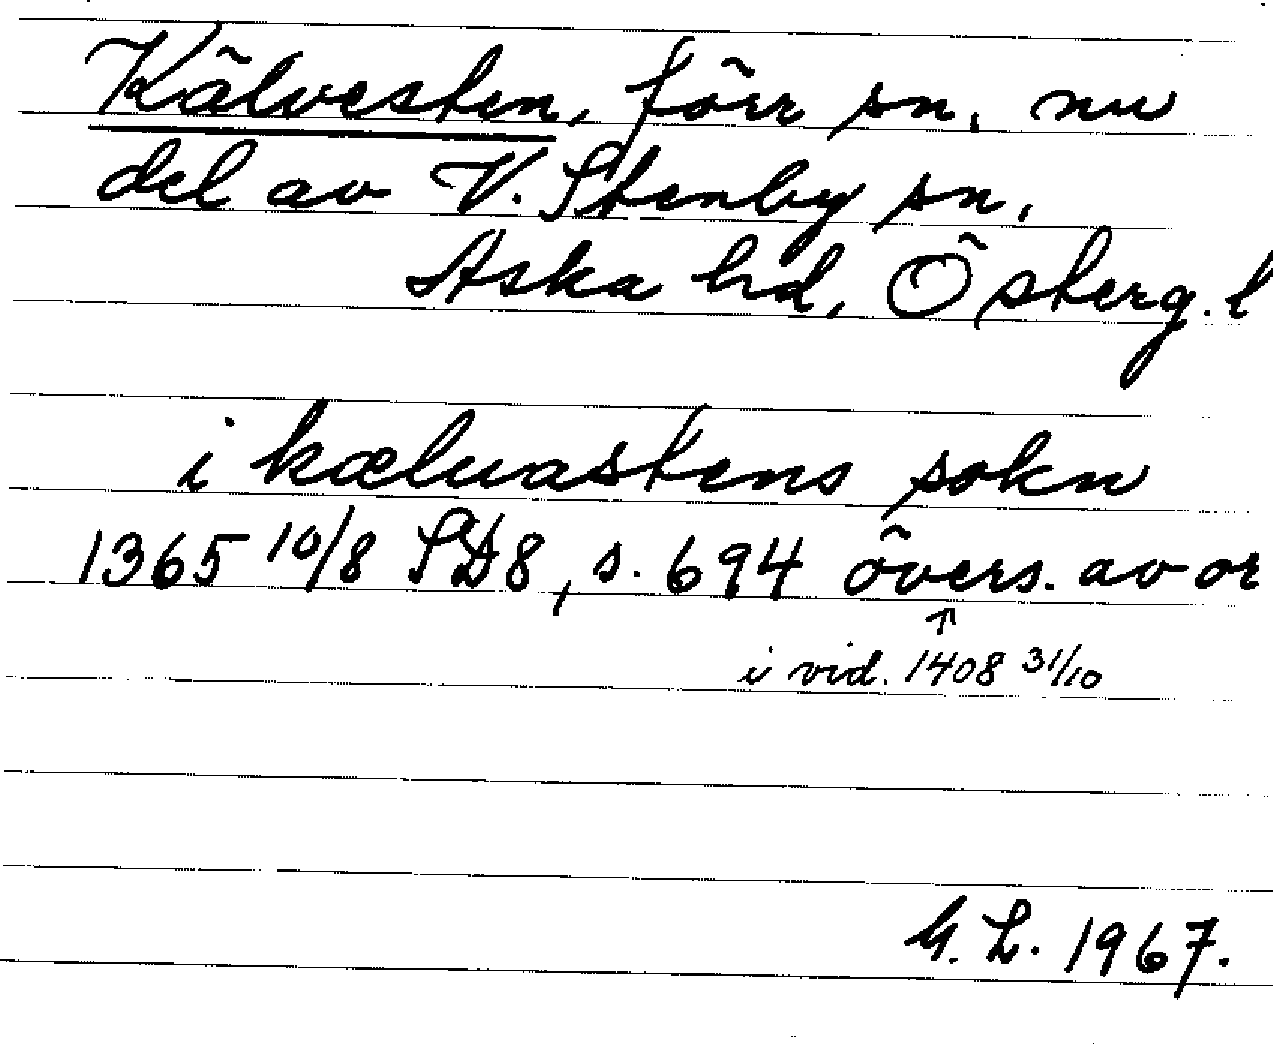 Kälvesten, förr sn, nu
del av V. Stenby sn,
Aska hd, Österg. l
i kæluastens sokn
1365 10/8 SD8, s. 694 övers. av or
↑
i vid. 1408 31/10
G. L. 1967.